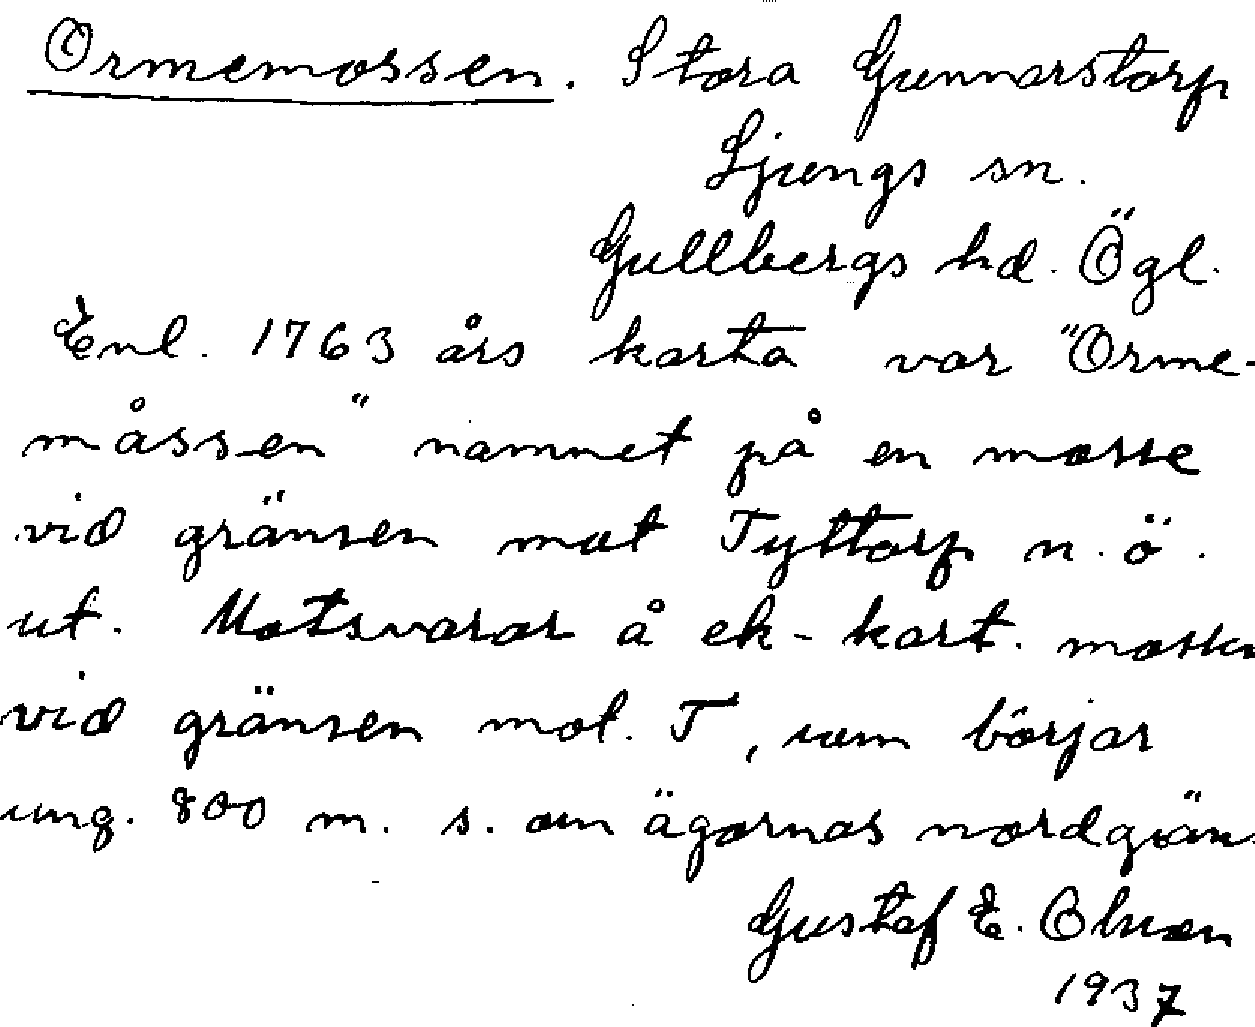 Ormemossen. Stora Gunnarstorp
Ljungs sn.
Gullbergs hd. Ögl.
Enl. 1763 års karta var "Orme-
måssen" namnet på en mosse
vid gränsen mot Tyttorp n.ö.
ut. Motsvarar å ek-kart. mossen
vid gränsen mot. T, som börjar
ung. 800 m. s. om ägornas nordgräns
Gustaf E. Olsson
1937